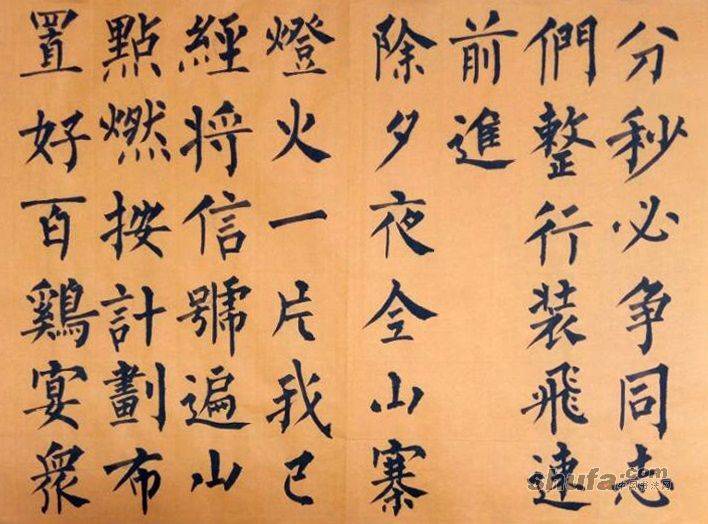 分秒必争同志
們整行装飛速
前進
除夕夜全山寨
燈火一片我已
經将信號遍山
點燃按計劃布
置好百鷄宴衆
shufa.com
中国书法网